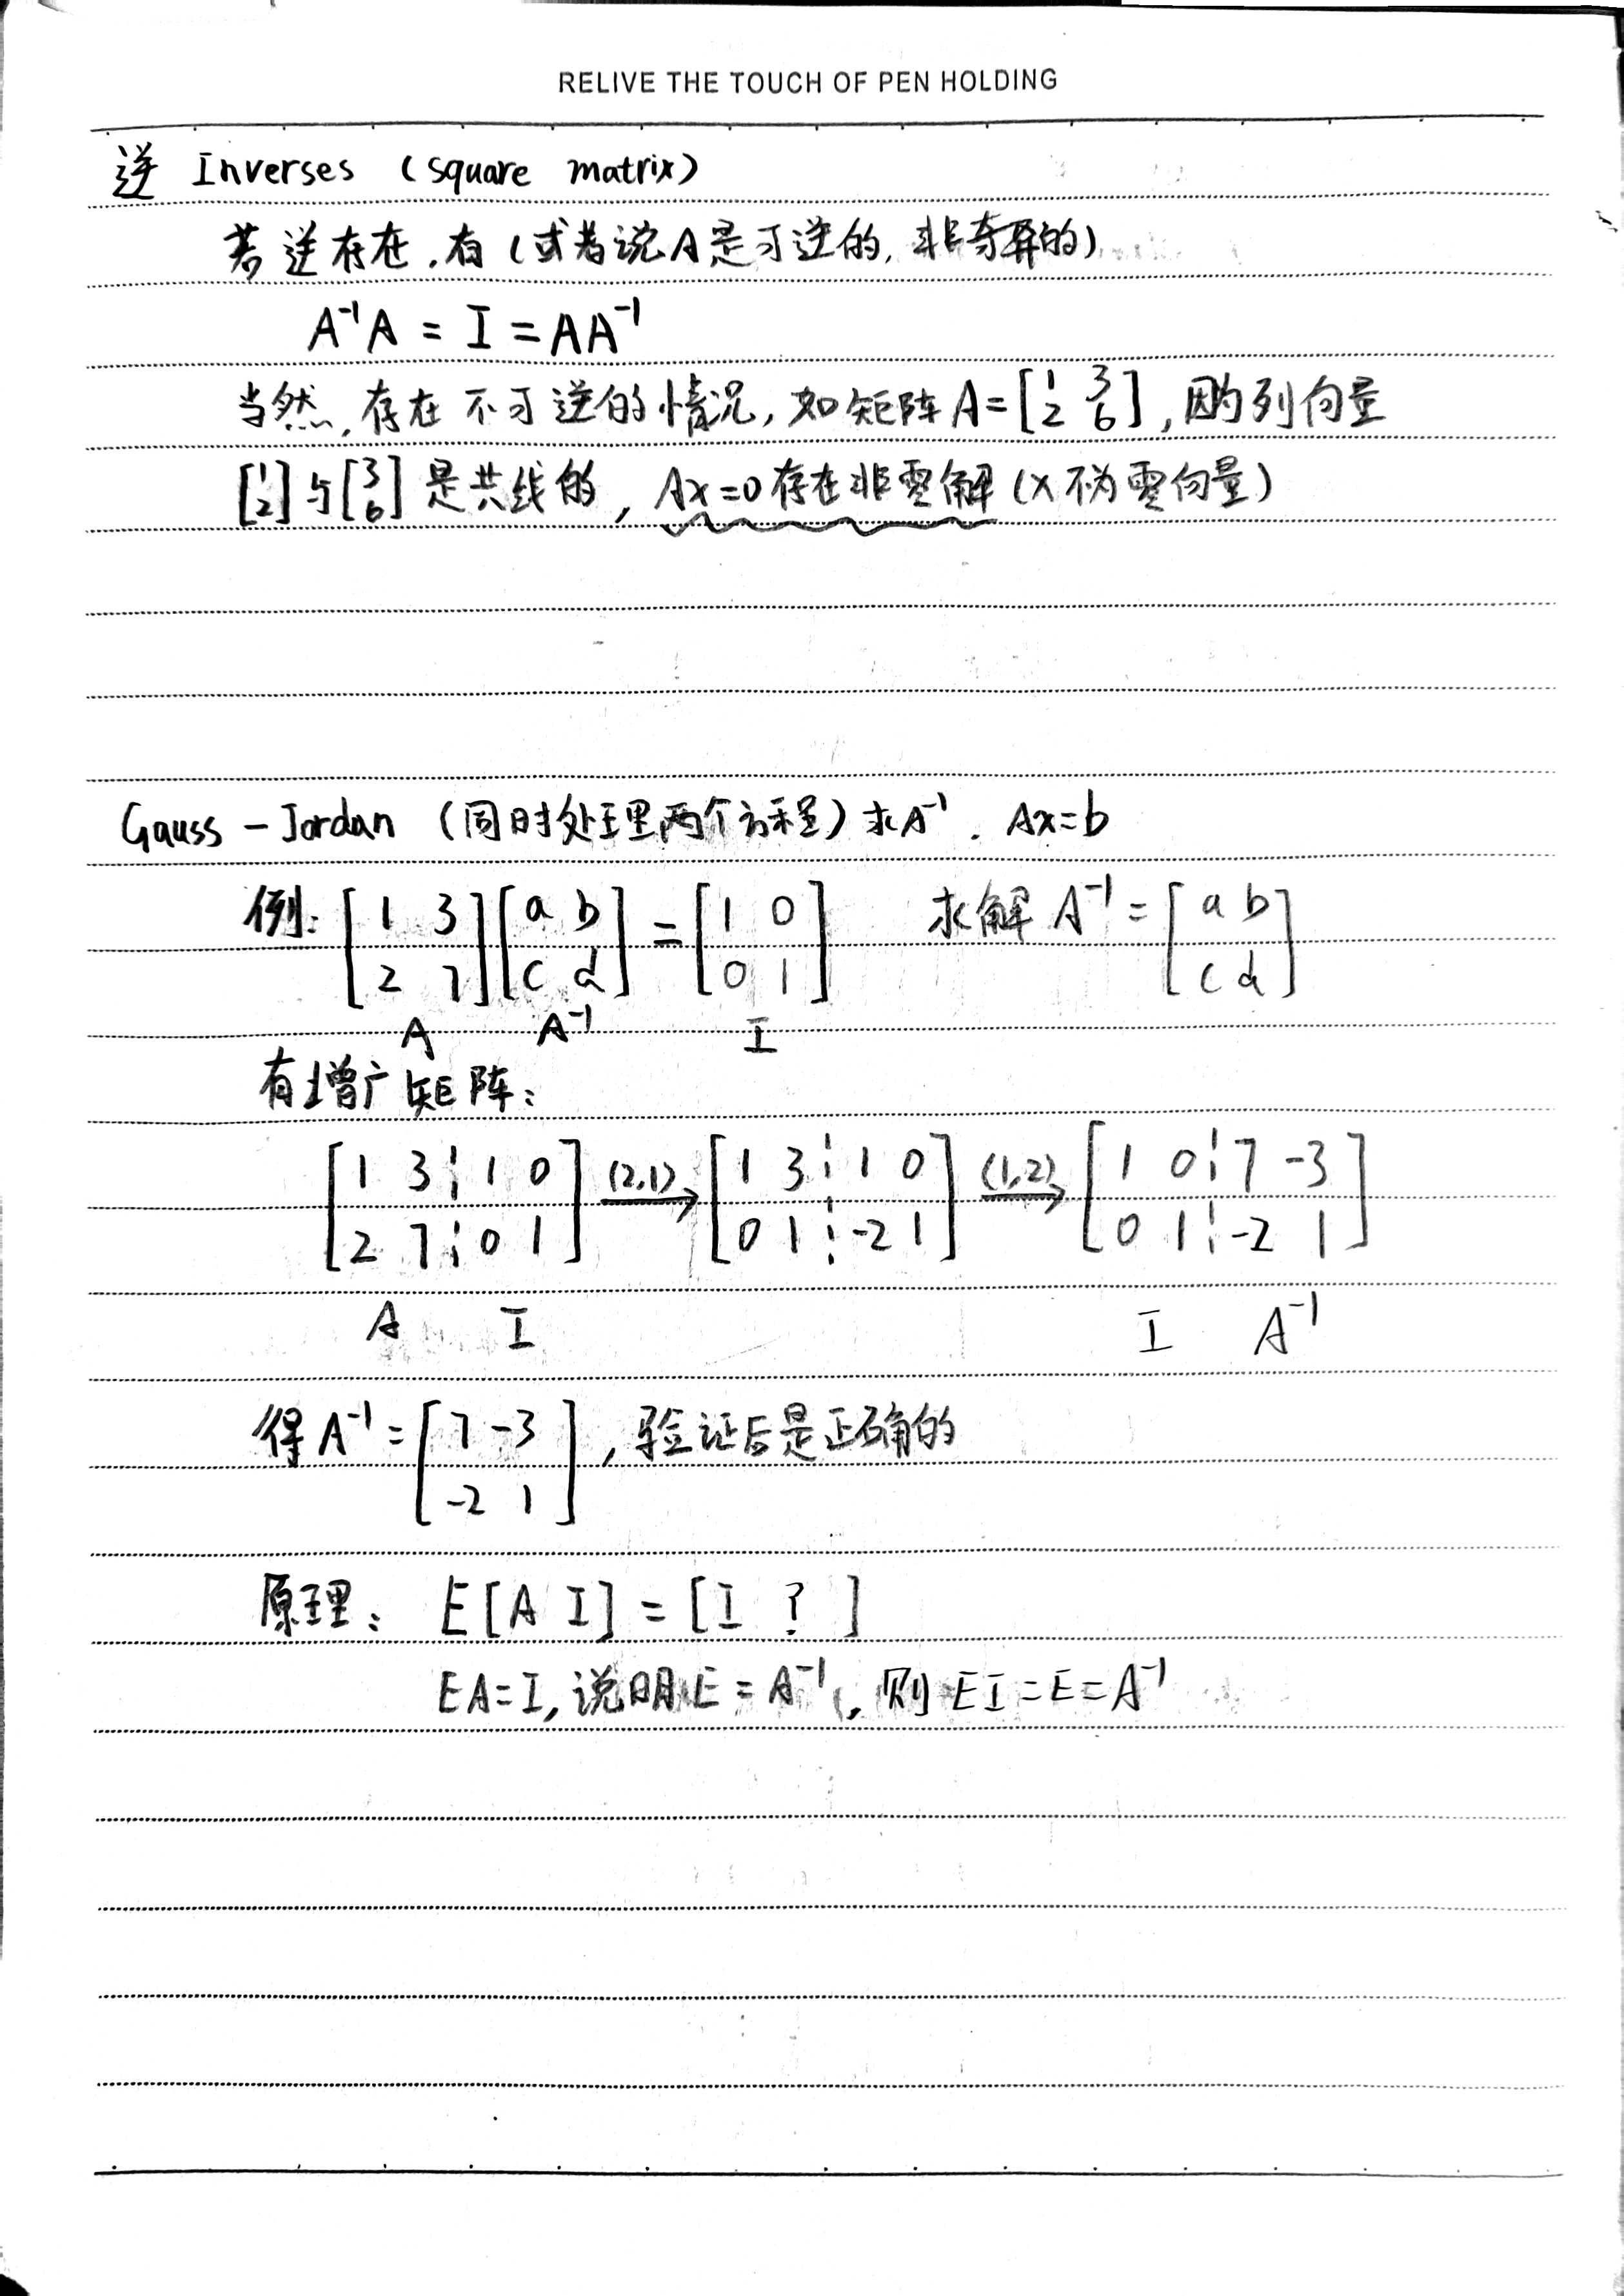 RELIVE THE TOUCH OF PEN HOLDING
逆 Inverses (square matrix)
若逆存在,有(或者说A是可逆的,非奇异的)
A⁻¹A = I = AA⁻¹
当然,存在不可逆的情况,如矩阵A=[1 3; 2 6],因为列向量
[1; 2]与[3; 6]是共线的,Ax=0存在非零解(x不为零向量)
Gauss-Jordan (同时处理两个方程)求A⁻¹. Ax=b
例: [1 3; 2 7][a b; c d] = [1 0; 0 1] 求解 A⁻¹ = [a b; c d]
A A⁻¹ I
有增广矩阵:
[1 3 ¦ 1 0; 2 7 ¦ 0 1] (2,1)→ [1 3 ¦ 1 0; 0 1 ¦ -2 1] (1,2)→ [1 0 ¦ 7 -3; 0 1 ¦ -2 1]
A I I A⁻¹
得A⁻¹ = [7 -3; -2 1],验证后是正确的
原理: E[A I] = [I ? ]
EA=I,说明E=A⁻¹,则EI=E=A⁻¹